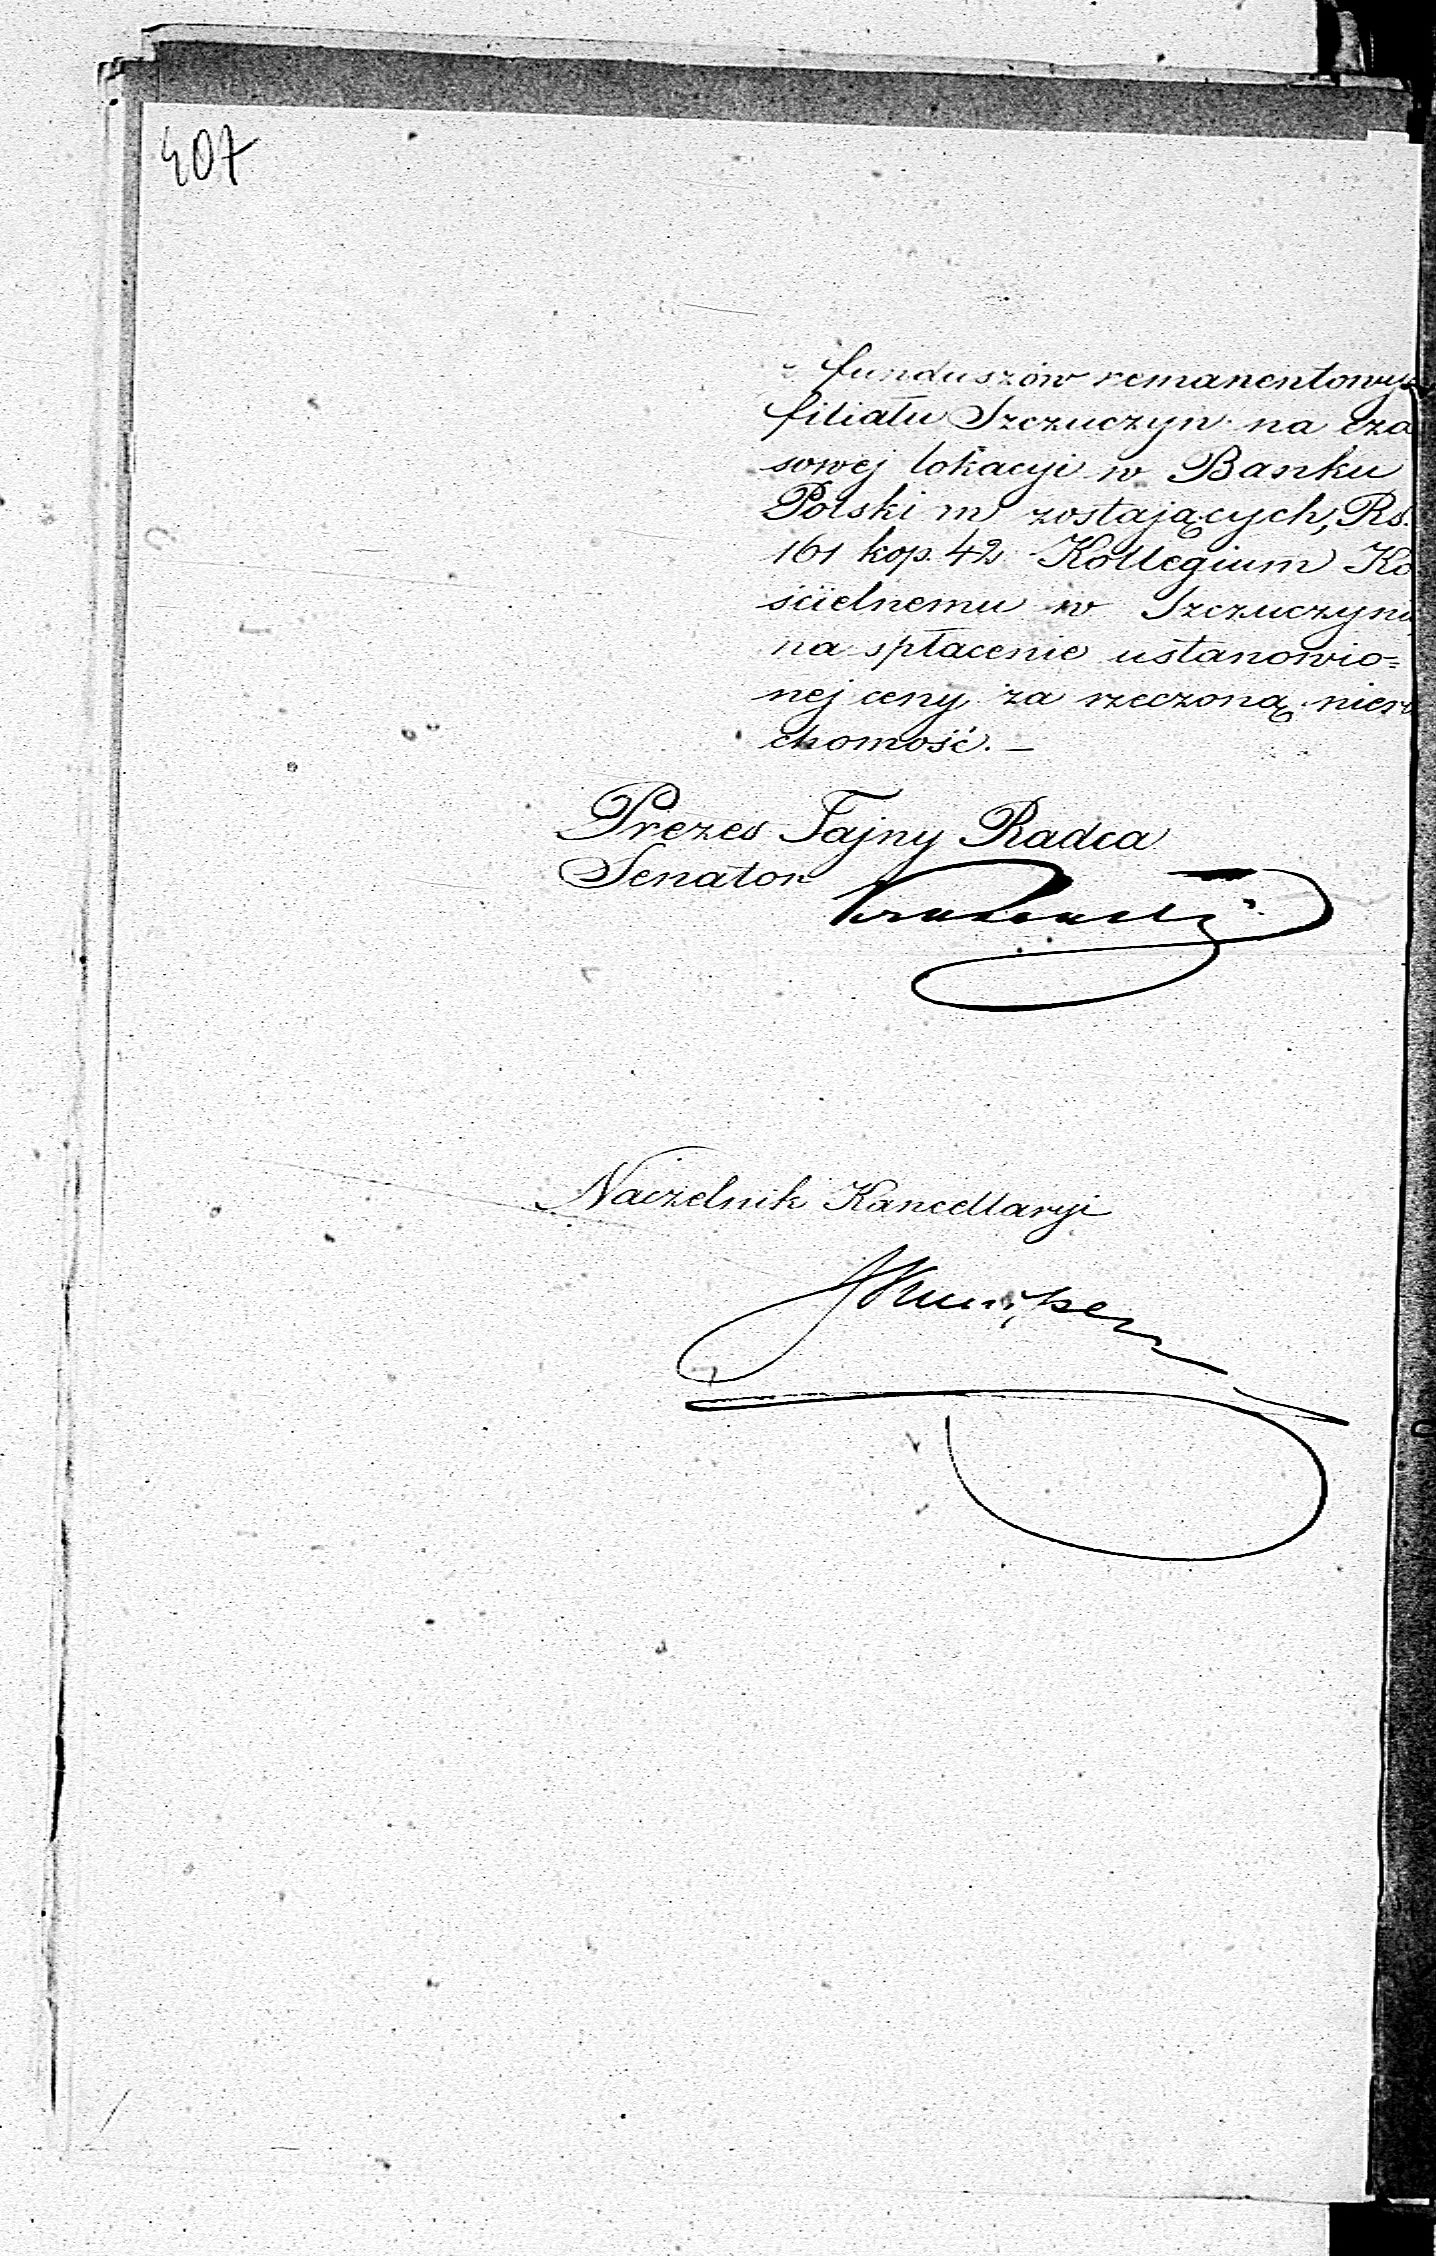 407
z funduszów remanentowy
filiału Szczuczyn na cza
sowej lokacyi w Banku
Polskim zostających, Rs.
161 kop. 42 Kollegium Ko
ścielnemu w Szczuczyni
na spłacenie ustanowio=
nej ceny za rzeczoną nieru
chomość. —
Prezes Tajny Radca
Senator
Naczelnik Kancellaryi